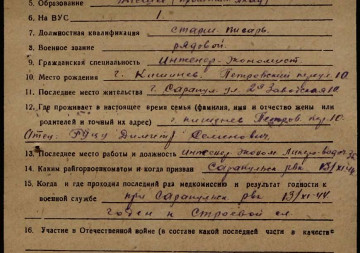 5. Образование высшее
6. На ВУС 1
7. Должностная квалификация старш. писарь
8. Военное звание рядовой
9. Гражданская специальность Инженер-экономист
10. Место рождения г. Кишинев, Петровский переул. 10
11. Последнее место жительства г. Сарапул ул. 2я Заводская 10
12. Где проживает в настоящее время семья (фамилия, имя и отчество жены или
родителей и точный их адрес) г. Кишинев пер. 10.
Отец: Димитр Семенович.
13. Последнее место работы и должность Инженер эконом.
14. Каким райгорвоенкоматом и когда призван Сарапульск рвк 13/XI-44
15. Когда и где проходил последний раз медкомиссию и результат годности к
военной службе при Сарапульск рвк 13/XI-44
годен к строевой сл.
16. Участие в Отечественной войне (в составе какой последней части в качестве